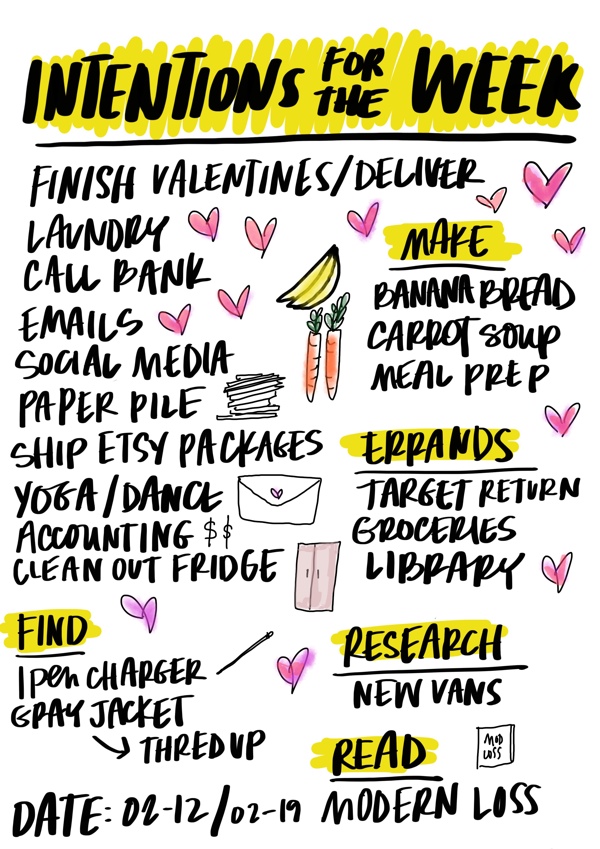 INTENTIONS FOR THE WEEK
FINISH VALENTINES/DELIVER
LAUNDRY
CALL BANK
EMAILS
SOCIAL MEDIA
PAPER PILE
SHIP ETSY PACKAGES
YOGA/DANCE
ACCOUNTING $$
CLEAN OUT FRIDGE
MAKE
BANANA BREAD
CARROT SOUP
MEAL PREP
ERRANDS
TARGET RETURN
GROCERIES
LIBRARY
FIND
IPEN CHARGER
GRAY JACKET
THREDUP
RESEARCH
NEW VANS
READ
MOD
LOSS
MODERN LOSS
DATE: 02-12/02-19